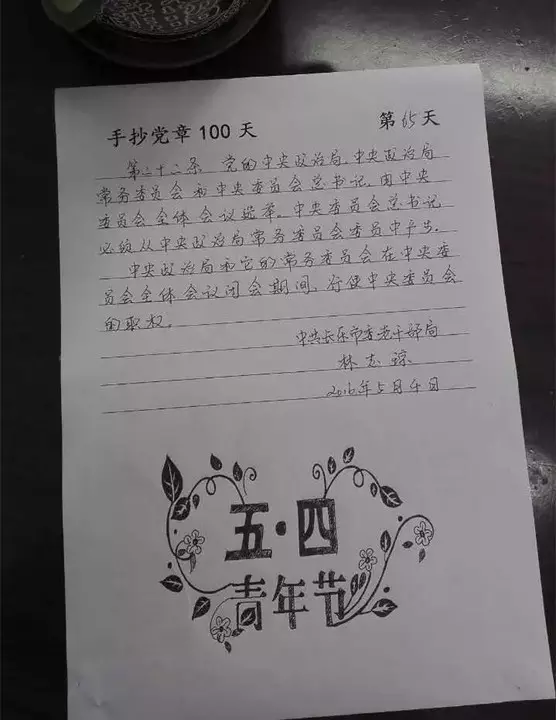 手抄党章100天 第65天
第二十二条 党的中央政治局、中央政治局
常务委员会和中央委员会总书记,由中央
委员会全体会议选举。中央委员会总书记
必须从中央政治局常务委员会委员中产生。
中央政治局和它的常务委员会在中央委
员会全体会议闭会期间,行使中央委员会
的职权。
中共长乐市委老干部局
林志琼
2016年5月4日
五·四
青年节